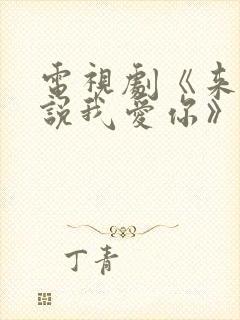 電視劇《来
説我愛你》
丁青